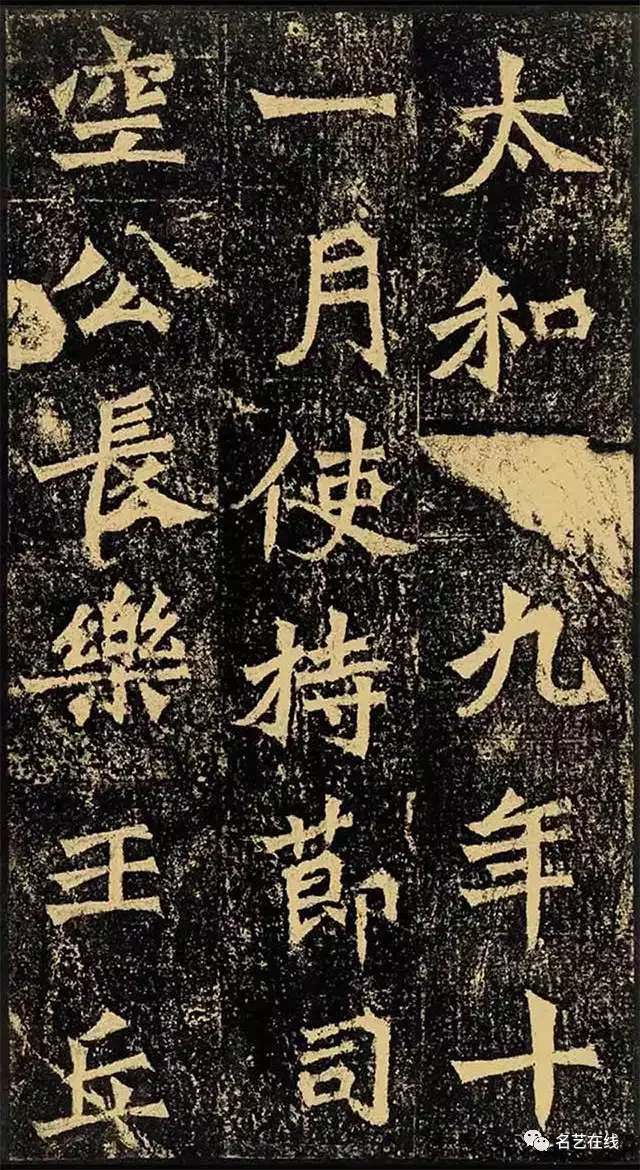 太和九年十
一月使持莭司
空公長樂王丘
名艺在线